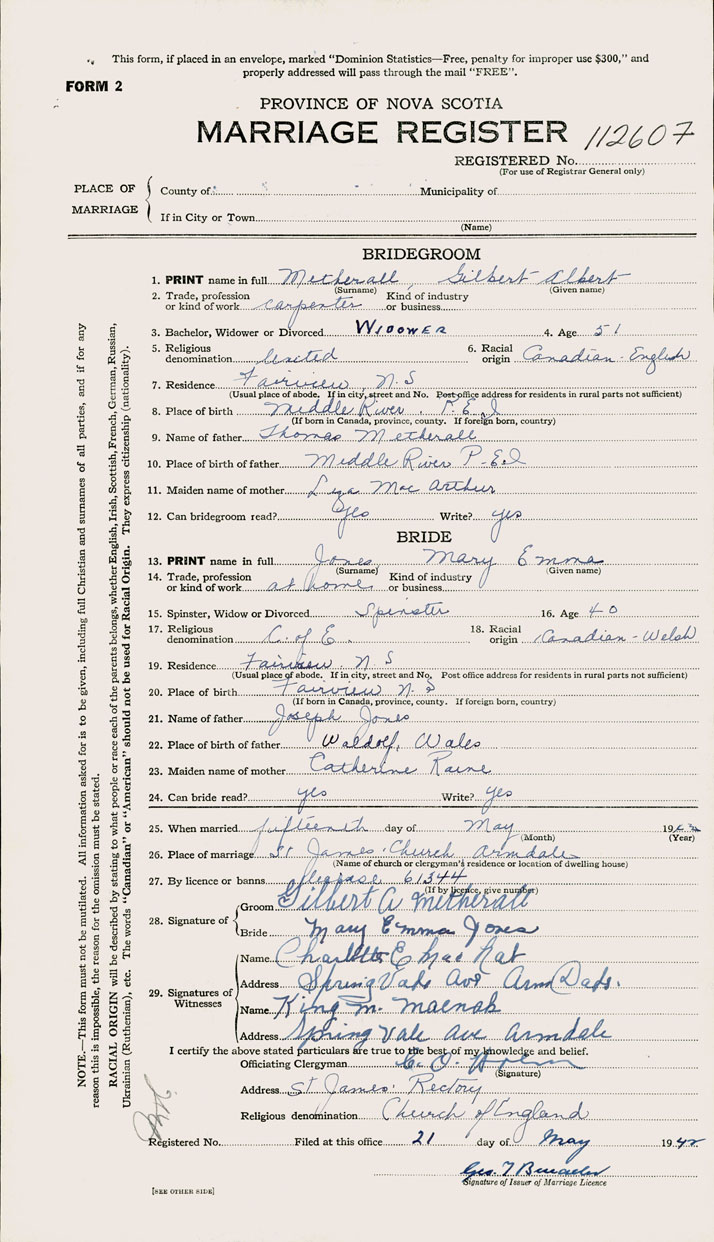 This form, if placed in an envelope, marked "Dominion Statistics—Free, penalty for improper use $300," and
properly addressed will pass through the mail "FREE".
FORM 2
PROVINCE OF NOVA SCOTIA
MARRIAGE REGISTER 112607
REGISTERED No.
(For use of Registrar General only)
PLACE OF MARRIAGE
County of Municipality of
If in City or Town
(Name)
BRIDEGROOM
1. PRINT name in full Metherall Gilbert Albert
(Surname) (Given name)
2. Trade, profession or kind of work carpenter Kind of industry or business
3. Bachelor, Widower or Divorced WIDOWER 4. Age 51
5. Religious denomination United 6. Racial origin Canadian-English
7. Residence Fairview N.S
(Usual place of abode. If in city, street and No. Post office address for residents in rural parts not sufficient)
8. Place of birth Middle River P.E.I
(If born in Canada, province, county. If foreign born, country)
9. Name of father Thomas Metherall
10. Place of birth of father Middle River P-E.I
11. Maiden name of mother Liza Mac Arthur
12. Can bridegroom read? Yes Write? yes
BRIDE
13. PRINT name in full Jones Mary Emma
(Surname) (Given name)
14. Trade, profession or kind of work at home Kind of industry or business
15. Spinster, Widow or Divorced Spinster 16. Age 40
17. Religious denomination C. of E. 18. Racial origin Canadian-Welsh
19. Residence Fairview. N.S
(Usual place of abode. If in city, street and No. Post office address for residents in rural parts not sufficient)
20. Place of birth Fairview N.S
(If born in Canada, province, county. If foreign born, country)
21. Name of father Joseph Jones
22. Place of birth of father Waldolf, Wales
23. Maiden name of mother Catherine Raine
24. Can bride read? yes Write? yes
25. When married fifteenth day of May 194
(Month) (Year)
26. Place of marriage St James' Church Armdale
(Name of church or clergyman's residence or location of dwelling house)
27. By licence or banns 61344
(If by licence, give number)
28. Signature of
Groom Gilbert A Metherall
Bride Mary Emma Jones
29. Signatures of Witnesses
Name Charlotte E Mac Nab
Address Spring Vale Ave
Name King M. Macnab
Address Spring Vale Ave Armdale
I certify the above stated particulars are true to the best of my knowledge and belief.
Officiating Clergyman
(Signature)
Address St James' Rectory
Religious denomination Church of England
Registered No. Filed at this office 21 day of May 1942
Geo. T
Signature of Issuer of Marriage Licence
[SEE OTHER SIDE]
NOTE.—This form must not be mutilated. All information asked for is to be given, including full Christian and surnames of all parties, and if for any
reason this is impossible, the reason for the omission must be stated.
RACIAL ORIGIN will be described by stating to what people or race each of the parents belongs, whether English, Irish, Scottish, French, German, Russian,
Ukrainian (Ruthenian), etc. The words "Canadian" or "American" should not be used for Racial Origin. They express citizenship (nationality).